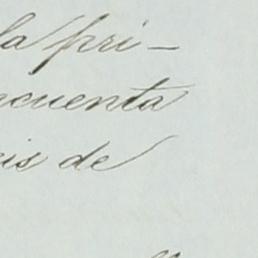 la pri-
ncuenta
eis de